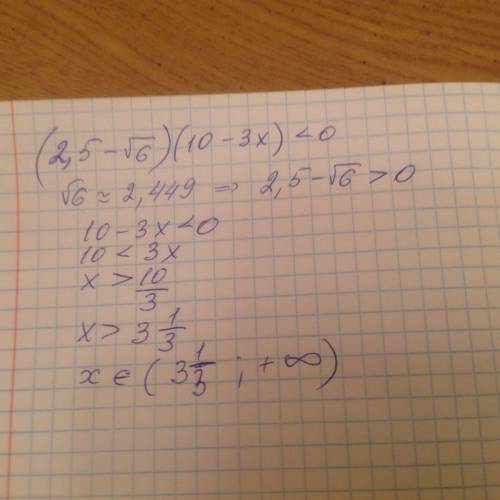 (2,5-√6)(10-3x)<0
√6≈2,449 ⇒ 2,5-√6>0
10-3x<0
10<3x
x>10/3
x>3 1/3
x∈(3 1/3 ; +∞)